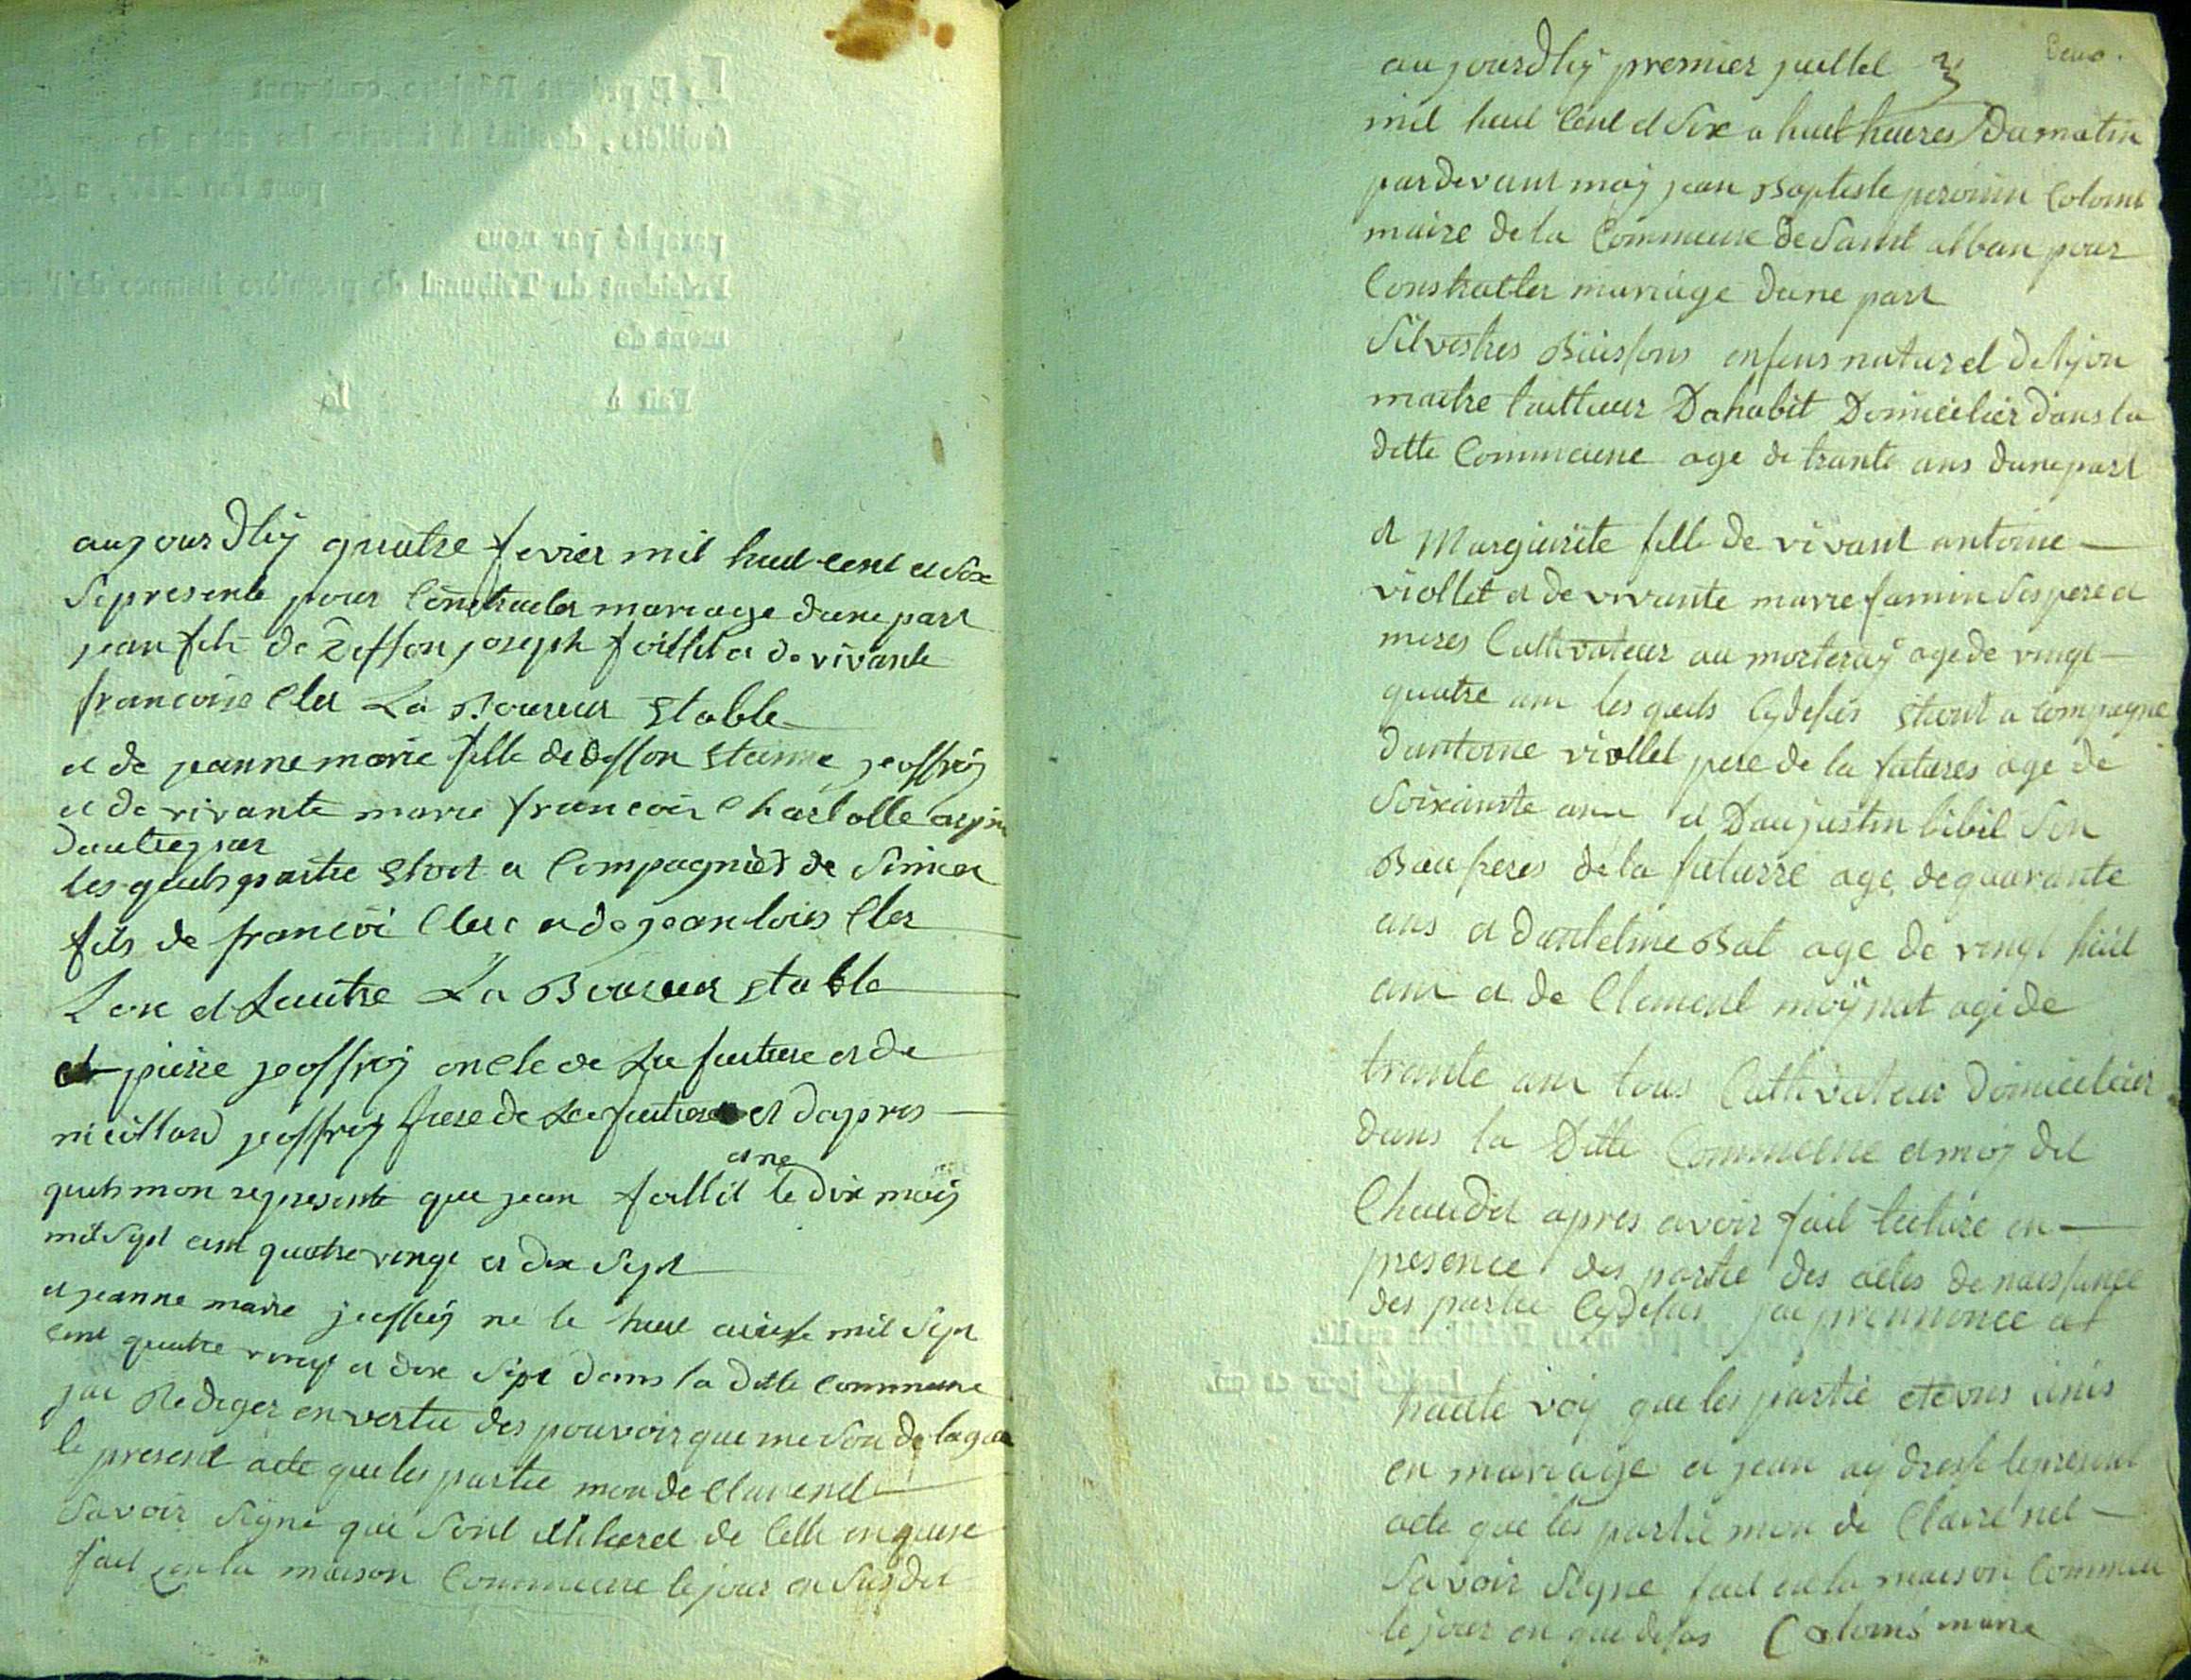 aujourdhÿ quatre fevrier mil huit cent et six
se presente pour Contracter mariage dune part
jean fils de deffon joseph foillet et de vivante
francoise Cler La Boureur Stable
et de jeanne marie fille de deffon Etienne jeoffroÿ
et de vivante marie francoise Charlotte
dautre par
les quels partie Etant a Compagnier de
fils de francoi Clerc et de jean lois Cler
Lun et Lautre La Boureur Stable
pierre jeoffroy oncle de La future et de
jeoffroy frere de La future et dapres
quels mon represente que jean foillet et ne le dix mars
mil Sept cent quatre vingt et dix Sept
et jeanne marie jeoffroy ne le huit mil Sept
cent quatre vingt et dix Sept dans la ditte Commune
jai Rediger en vertu des pouvoir que me Son
le present acte que les partie mon de Clarer net
Savoir Signe que Sont de Celle en quise
fait en la maison Commune le jour en Susdit
Deux.
aujourdhÿ premier juillet
mil huit Cent et Six a huit heures Du matin
par devant moÿ jean Baptiste peronin Colomb
maire de la Commune de Saint alban pour
Constratter mariage dune part
Silvestres Buissons enfens naturel de lyon
maitre tailleur Dahabit Domicilier dans la
ditte Commune age de trante ans dune part
et Margurite fille de vivant antoine
viollet et de vivante marie famin Ses pere et
meres Cultivateur au morteraÿ age de vingt
quatre ans les quels Cydesus Etant a compagne
dantoine viollet pere de la futures age de
Soixante ans et Daujustin Son
Beau freres de la futurre age de quarante
ans et dantelme Bal age de vingt huit
ans et de Clement moÿnat age de
trante ans tous Cultivateur domicilier
dans la Ditte Commune et moy dit
apres avoir fait lecture en
presence des partie des actes de naissance
des partie Cydesus jai prennonce at
haute voÿ que les partie etevus unis
en mariage et jean aÿ dresse le present
acte que les partie mon de Clare net
Savoir Signe fait en la maison Commune
le jour en que desus Colomb maire